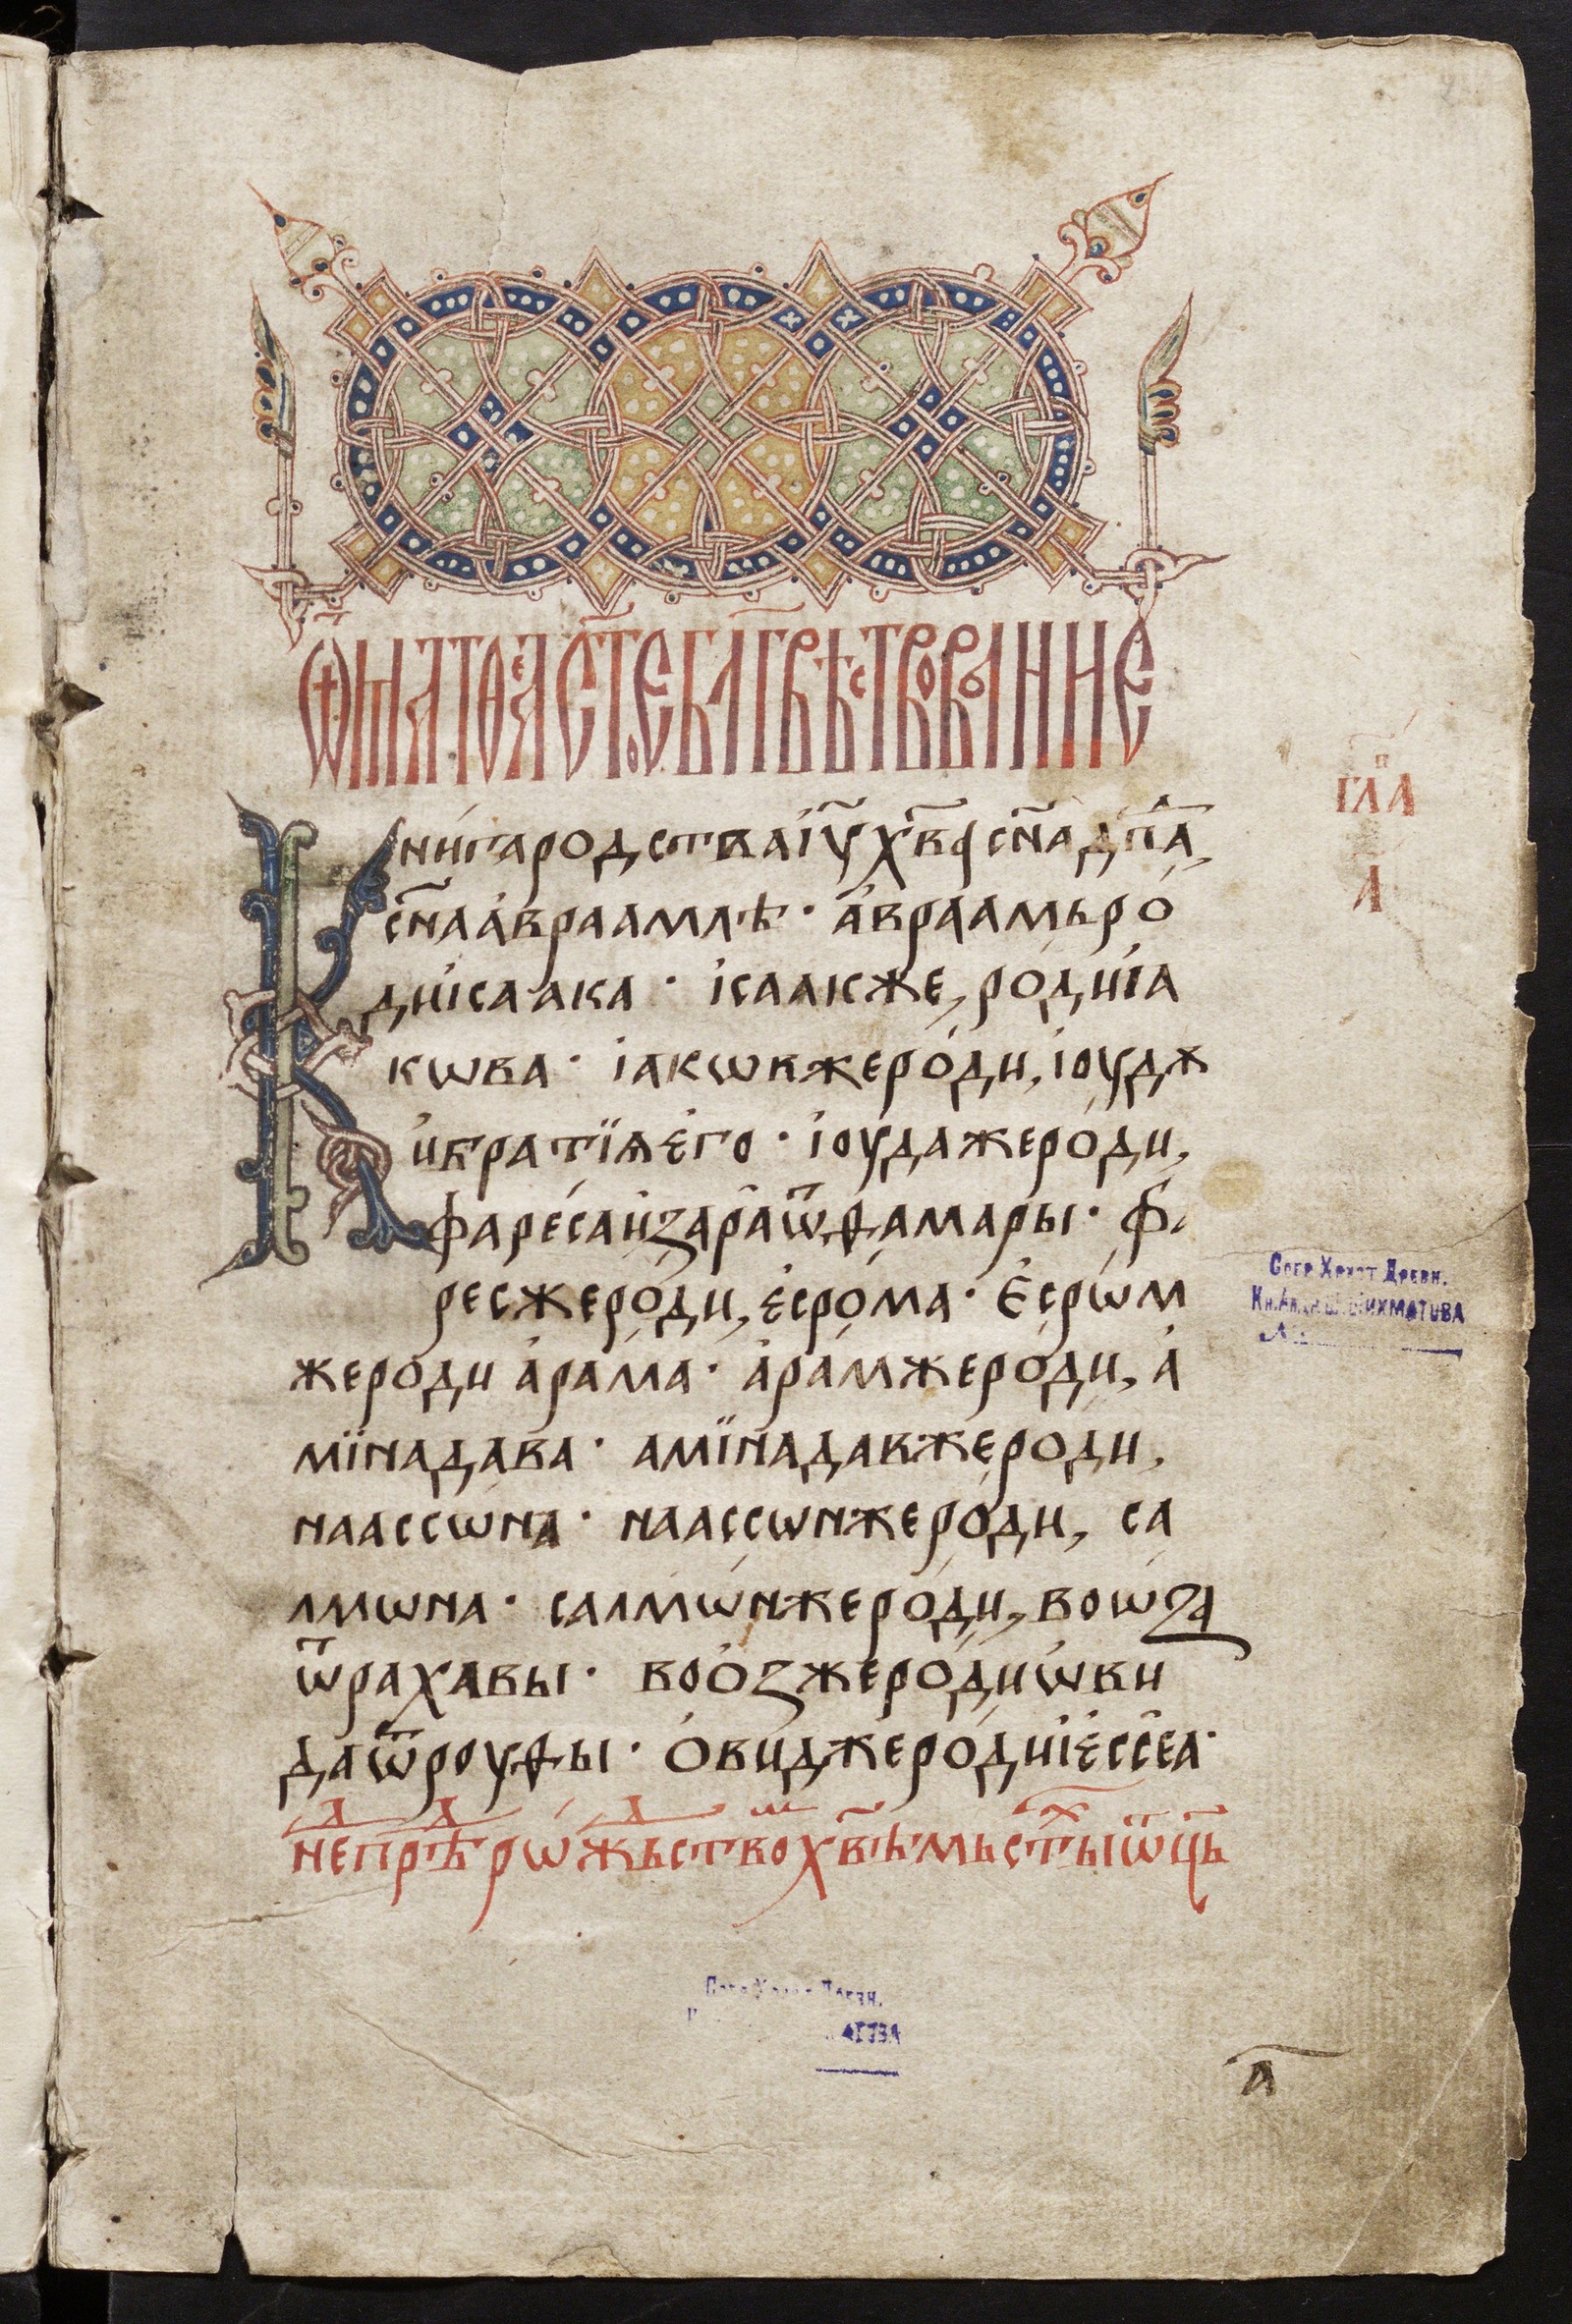 Ѿ МАТѲЕꙖ СТ҃ОЕ БЛ҃ГВѢСТВОВАНИЕ
Книга родства іу҃ х҃ва сн҃а дв҃да,
сн҃а авраамлѣ · авраамь ро
ди ісаака · ісаакже, роди іа
кѡва · іакѡвже роди, іоудѫ
и братїѧ его · іоуда же роди,
фареса и зара ѿ ѳамары · фа
ресже роди, есрома · Есрѡм
же роди арама · арамже роди, а
мїнадава · амїнадавже роди,
наассѡна · наассѡнже роди, са
лмѡна · салмѡнже роди, воѡза
ѿ рахавы · воозже роди ѡви
да ѿ роуѳы · Овидже роди іессеа ·
гла
а
не прѣ рѡжьство хв҃ѣмь ст҃ы ѿц҃ь
Собр. Христ. Древн.
ШИХМАТОВА
а